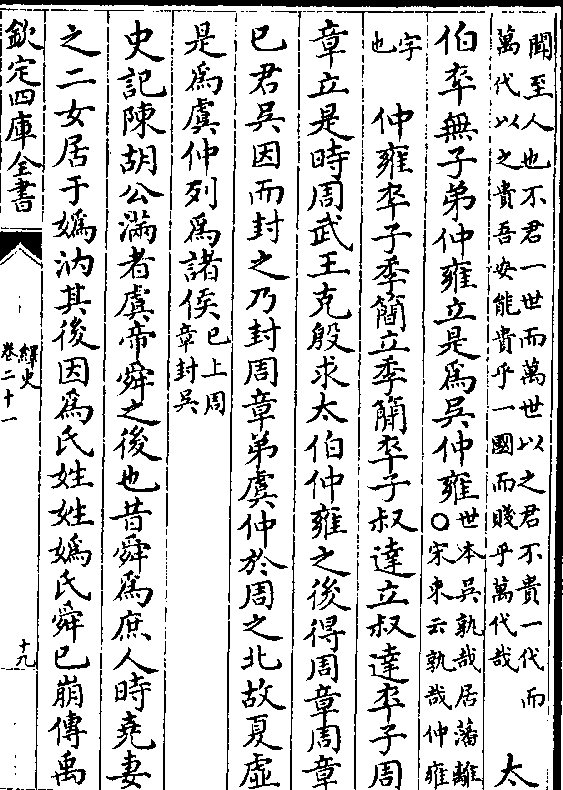 聞至人也不君一世而萬世以之君不貴一代而
萬代以之貴吾安能貴乎一國而賤乎萬代哉
太
伯卒無子弟仲雍立是爲吳仲雍○世本吳孰哉居藩離
宋衷云孰哉仲雍
字
也
仲雍卒子季簡立季簡卒子叔達立叔達卒子周
章立是時周武王克殷求太伯仲雍之後得周章周章
已君吳因而封之乃封周章弟虞仲於周之北故夏虛
是爲虞仲列爲諸侯已上周
章封吳
史記陳胡公滿者虞帝舜之後也昔舜爲庶人時堯妻
之二女居于嬀汭其後因爲氏姓姓嬀氏舜已崩傳禹
欽定四庫全書
繹史
卷二十一
十九